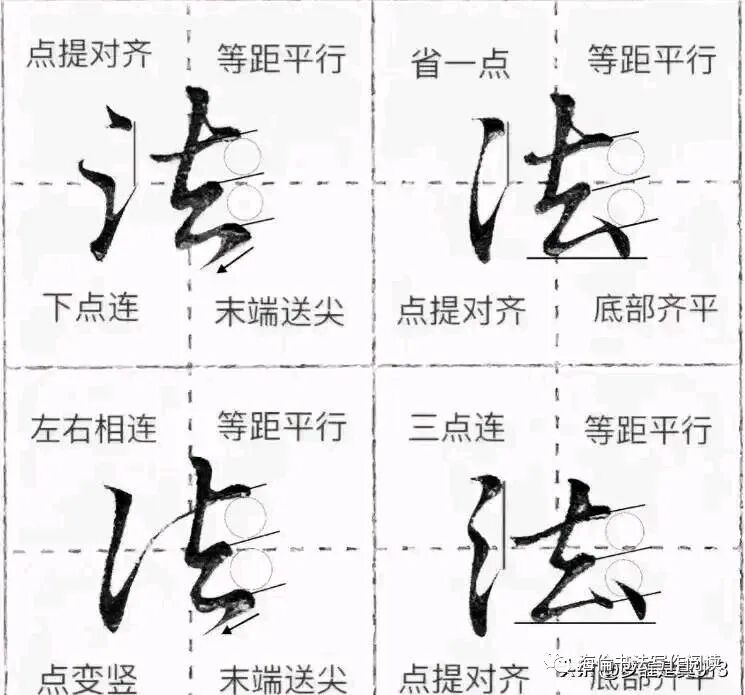 点提对齐 等距平行 省一点 等距平行
法 法
下点连 末端送尖 点提对齐 底部齐平
左右相连 等距平行 三点连 等距平行
法 法
点变竖 末端送尖 点提对齐 底部齐平
海伦书法写作阅读